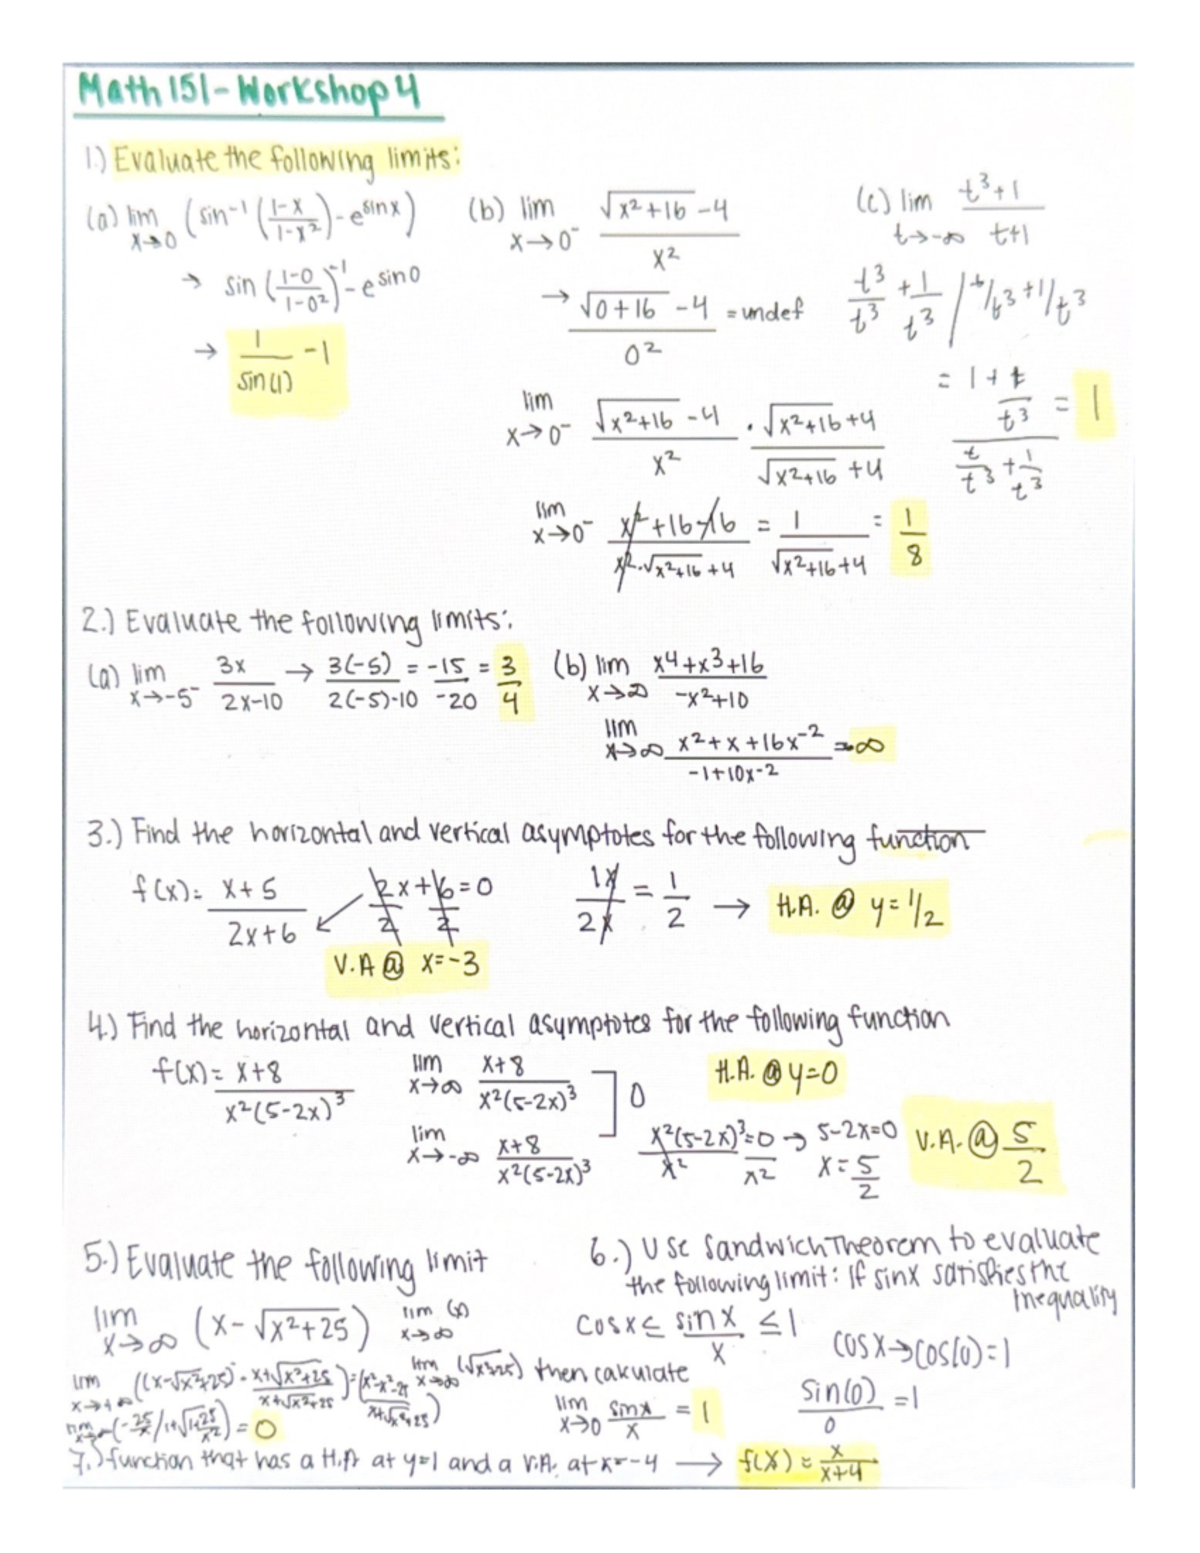 Math 151 - Workshop 4
1.) Evaluate the following limits:
(a) lim x→0 (sin⁻¹((1-x)/(1-x²)) - e^(sinx))
→ sin((1-0)/(1-0²))⁻¹ - e^(sin0)
→ 1/sin(1) - 1
(b) lim x→0⁻ (√(x²+16) - 4)/x²
→ (√(0+16) - 4)/0² = undef
lim x→0⁻ (√(x²+16) - 4)/x² · (√(x²+16) + 4)/(√(x²+16) + 4)
lim x→0⁻ (x²+16-16)/(x²·√(x²+16) + 4) = 1/(√(x²+16) + 4) = 1/8
(c) lim t→-∞ (t³+1)/(t+1)
t³/t³ + 1/t³ / t/t³ + 1/t³
= (1 + t/t³)/(t/t³ + 1/t³) = 1
2.) Evaluate the following limits:
(a) lim x→-5⁻ 3x/(2x-10) → 3(-5)/(2(-5)-10) = -15/-20 = 3/4
(b) lim x→∞ (x⁴+x³+16)/(-x²+10)
lim x→∞ (x²+x+16x⁻²)/(-1+10x-2) = ∞
3.) Find the horizontal and vertical asymptotes for the following function
f(x) = (x+5)/(2x+6)
2x/2 + 6/2 = 0
1x/2x = 1/2 → H.A. @ y = 1/2
V.A @ x = -3
4.) Find the horizontal and vertical asymptotes for the following function
f(x) = (x+8)/(x²(5-2x)³)
lim x→∞ (x+8)/(x²(5-2x)³)
lim x→-∞ (x+8)/(x²(5-2x)³)
] 0
H.A. @ y=0
x²(5-2x)³/x² = 0/x² → 5-2x=0
x = 5/2
V.A. @ 5/2
5.) Evaluate the following limit
lim x→∞ (x - √(x²+25))
lim x→∞ (x)
lim x→∞ (√(x²+25))
lim x→+∞ ((x-√(x²+25)) · (x+√(x²+25))/(x+√(x²+25))) = (x²-x²-25)/(x+√(x²+25))
(-25/x / 1+√(1+25/x²)) = 0
6.) Use Sandwich Theorem to evaluate
the following limit: If sinx satisfies the
inequality
cosx ≤ sinx/x ≤ 1
then calculate
lim x→0 sinx/x = 1
cosx → cos(0) = 1
sin(0)/0 = 1
7.) function that has a H.A at y=1 and a V.A. at x=-4 → f(x) = x/(x+4)